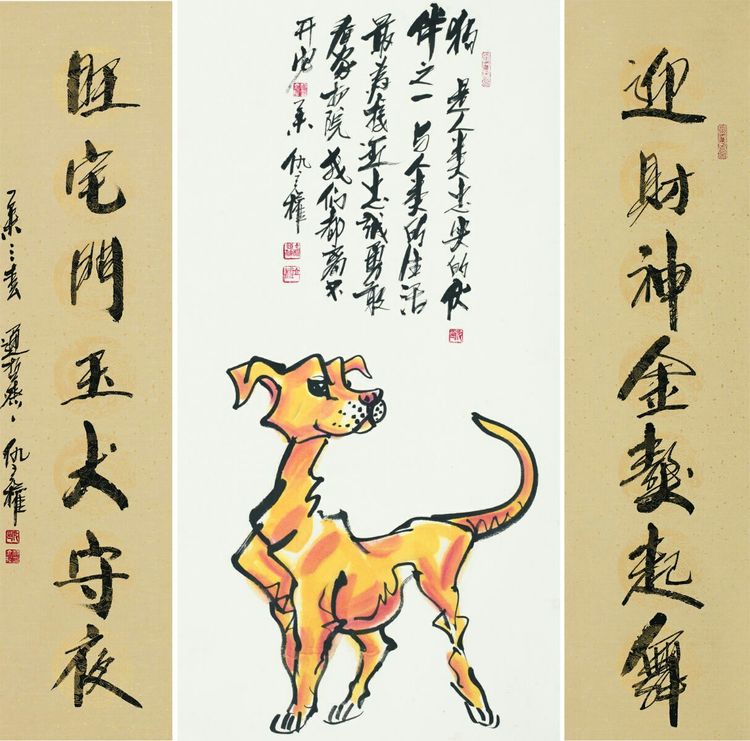 迎財神金獒起舞
狗 是人类忠实的伙
伴之一 与人类的生活
最为接近 忠诚勇敢
看家护院 我们都离不
开它
仇立權
旺宅門玉犬守夜
仇立權